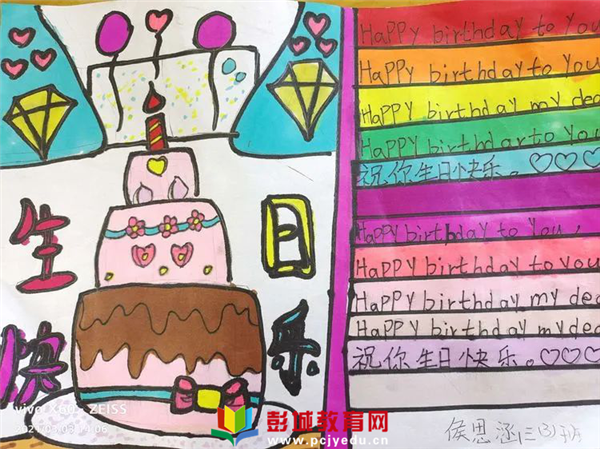 生日
快乐
Happy birthday to you
Happy birthday to you
Happy birthday my dea
Happy birthdar to you
祝你生日快乐。♡♡♡
Happy birthday to you,
Happy birthday to you
Happy birthday my dea
Happy birthday my dea
祝你生日快乐。♡♡♡
侯思涵 三(3)班
ZEISS
彭城教育网
www.pcjyedu.cn